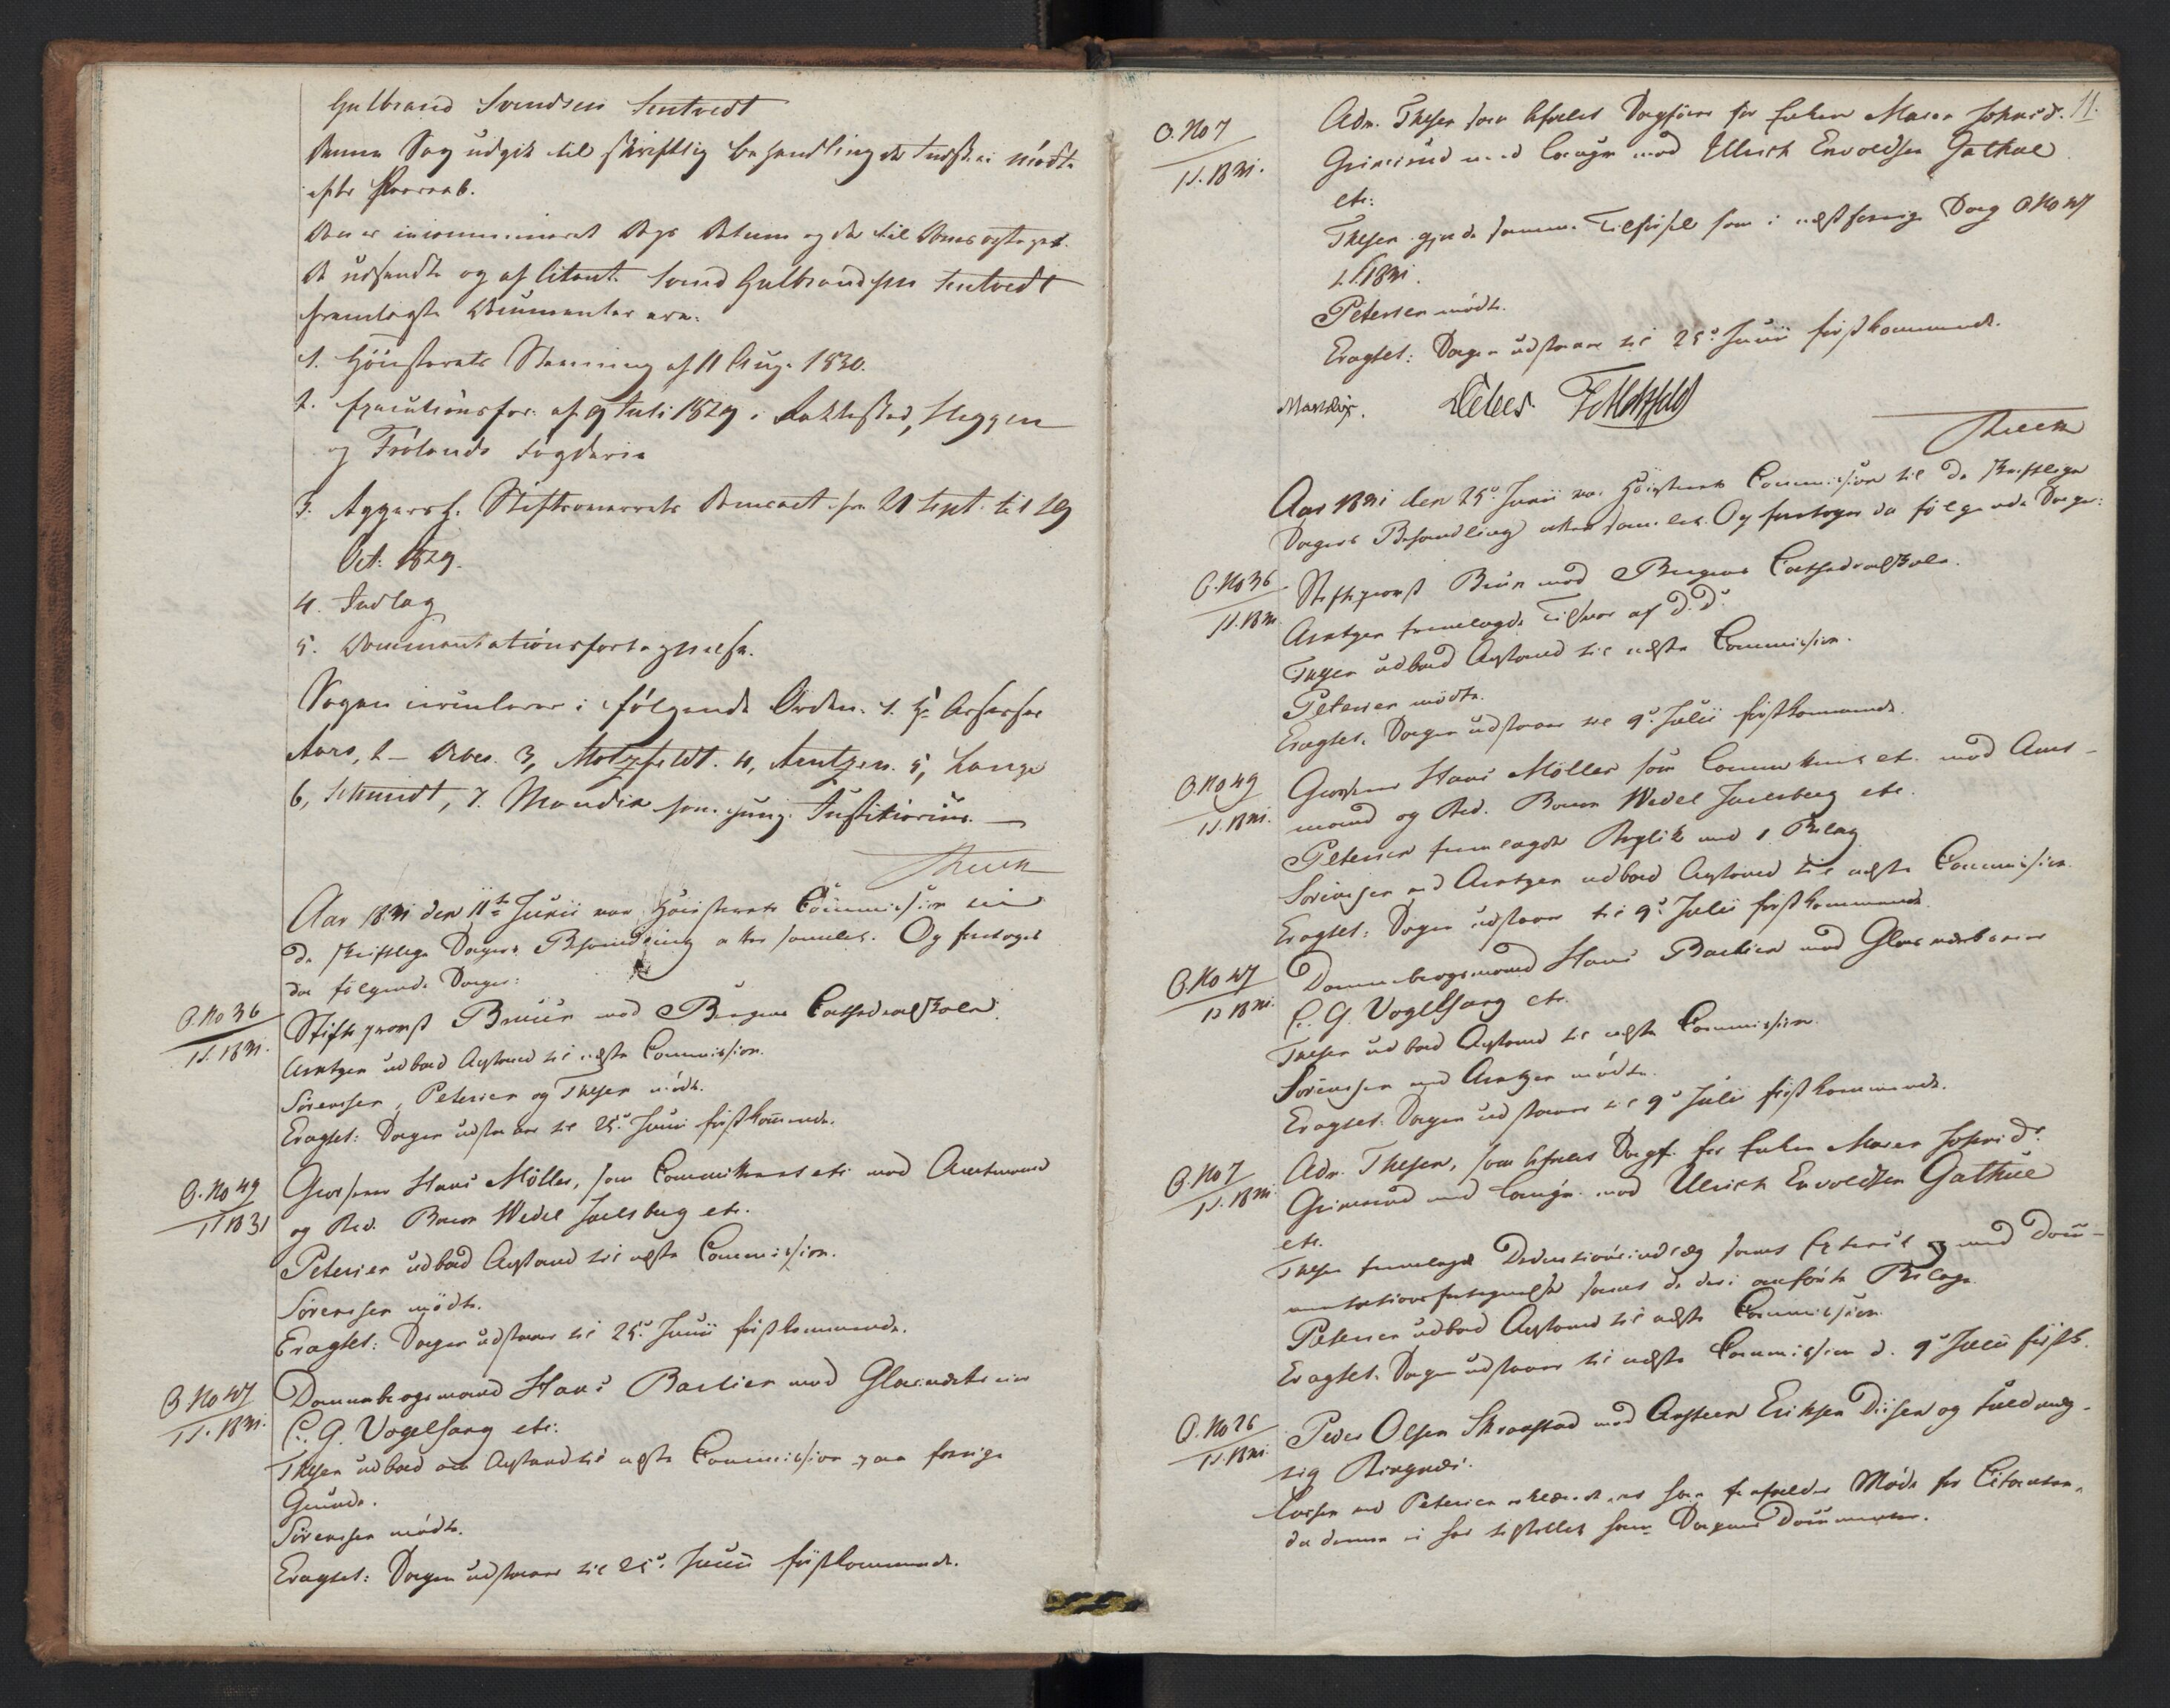 Gulbrand Svendsen Tentvedt
Denne Sag udgik til skriftlig Behandling da Indst. ei mödte
efter Paaraab.
Den er incamineret Dags Datum og da til Doms optaget.
De udfærdte og af Citant. Svend Gulbrandssen Tentvedt
fremlagte Documenter ere:
1. Höiesterets Stævning af 11 Aug. 1830.
2. Executionsfor. af 9 Juli 1829 i Rakkestad, Heggen
og Frölands Fogderie
3. Aggersh. Stiftsoverrets Domsact fra 21 Sept. til 19
Oct. 1829.
4. Indlæg
5. Documentationsfortegnelse.
Sagen circulerer i følgende Orden. 1. Hr Assessor
Aars, 2 - Debes. 3, Motzfeldt. 4, Arntzen. 5, Lange
6, Schmidt, 7. Mandix som fung. Justitiarius. -
Aar 1831 den 11te Junii var Höiesterets Commission til
de skriftlige Sagers Behandling atter samlet. Og foretoges
da følgende Sager:
O. No 36
1 S. 1831.
Stiftsprovst Bruun mod Bergens Cathedralskole.
Arntzen udbad Anstand til næste Commission.
Sörenssen, Petersen og Thesen mödte.
Eragtet: Sagen udstaaer til 25de Junii förstkommende.
O. No 49
1 S 1831
Grosserer Hans Möller, som Committeret etc. mod Amtmand
og Red. Baron Wedel Jarlsberg etc.
Petersen udbad Anstand til næste Commission.
Sörenssen mödte.
Eragtet: Sagen udstaaer til 25de Junii förstkommende.
O. No 47
1 S. 1831.
Dannebrogsmand Hans Bastien mod Glasværkseier
C. G. Vogelsang etc:
Thesen udbad om Anstand til næste Commission paa forrige
Grunde.
Sörenssen mödte.
Eragtet: Sagen udstaaer til 25de Junii förstkommende.
11.
O. No 7
1 S. 1831.
Adv. Thesen som befalet Sagförer for Enken Maren Johnsd.
Grimsrud med Laugv. mod Ulrich Envoldsen Gathue
etc:
Thesen gjorde samme Tilförsel som i næstforrige Sag O. No 47
1 S. 1831.
Petersen mödte.
Eragtet: Sagen udstaaer til 25de Junii förstkommende.
Mandix. Debes. Motzfeldt
Aar 1831 den 25de Junii var Höiesterets Commission til de skriftlige
Sagers Behandling atter samlet. Og foretoges da følgende Sager:
O. No 36
1 S. 1831
Stiftsprovst Bruun mod Bergens Cathedralskole.
Arntzen fremlagde Tilsvar af D. D.
Thesen udbad Anstand til næste Commission.
Petersen mödte.
Eragtet. Sagen udstaaer til 9de Julii förstkommende.
O. No 49
1 S. 1831.
Grosserer Hans Möller som Committeret etc. mod Amt-
mand og Red. Baron Wedel Jarlsberg etc.
Petersen fremlagde Replik med 1 Bilag.
Sörenssen ved Arntzen udbad Anstand til næste Commission.
Eragtet: Sagen udstaaer til 9de Julii förstkommende.
O. No 47
1 S 1831.
Dannebrogsmand Hans Bastien mod Glasværkseier
C. G. Vogelsang etc.
Thesen udbad Anstand til næste Commission.
Sörenssen ved Arntzen mödte.
Eragtet. Sagen udstaaer til 9de Julii förstkommende.
O. No 7
1 S. 1831.
Adv. Thesen, som befalet Sagf. for Enken Maren Johnsd.
Grimsrud med Laugv. mod Ulrich Envoldsen Gathue
etc.
Thesen fremlagde Deductionsindlæg samt Extract og med Docu-
mentationsfortegnelse samt de deri anførte Bilage.
Petersen udbad Anstand til næste Commission.
Eragtet. Sagen udstaaer til næste Commission d. 9de Julii förstk.
O. No 26
1 S. 1831.
Peder Olsen Skraastad mod Arnsteen Eriksen Diisen og Fuldmæg-
tig Ringnæs.
Lasson ved Petersen erklærede at frafalde Møde for Citanten,
da denne ei har tilstillet ham Sagens Documenter.